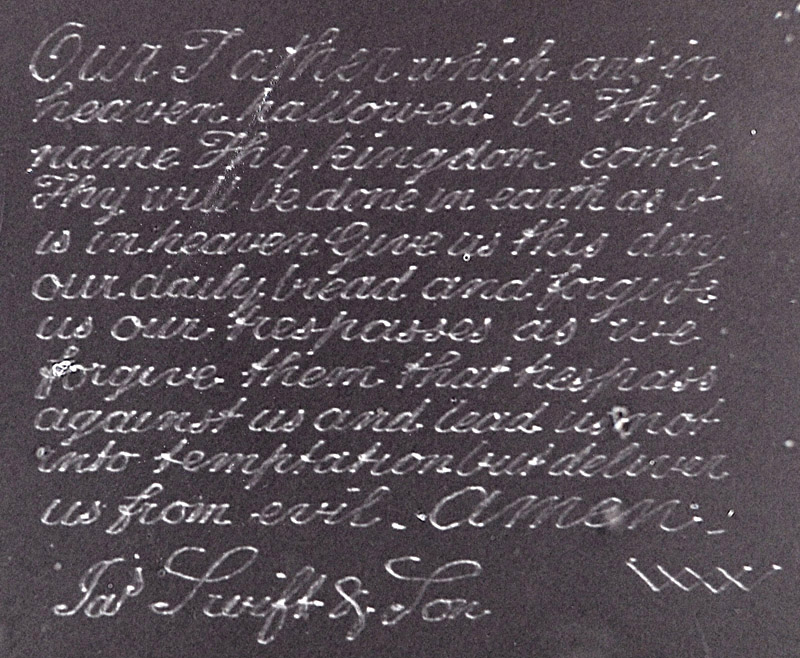 Our Father which art in
heaven hallowed be Thy
name Thy kingdom come
Thy will be done in earth as it
is in heaven Give us this day
our daily bread and forgive
us our trespasses as we
forgive them that trespass
against us and lead us not
into temptation but deliver
us from evil. Amen.
Jas Swift & Son